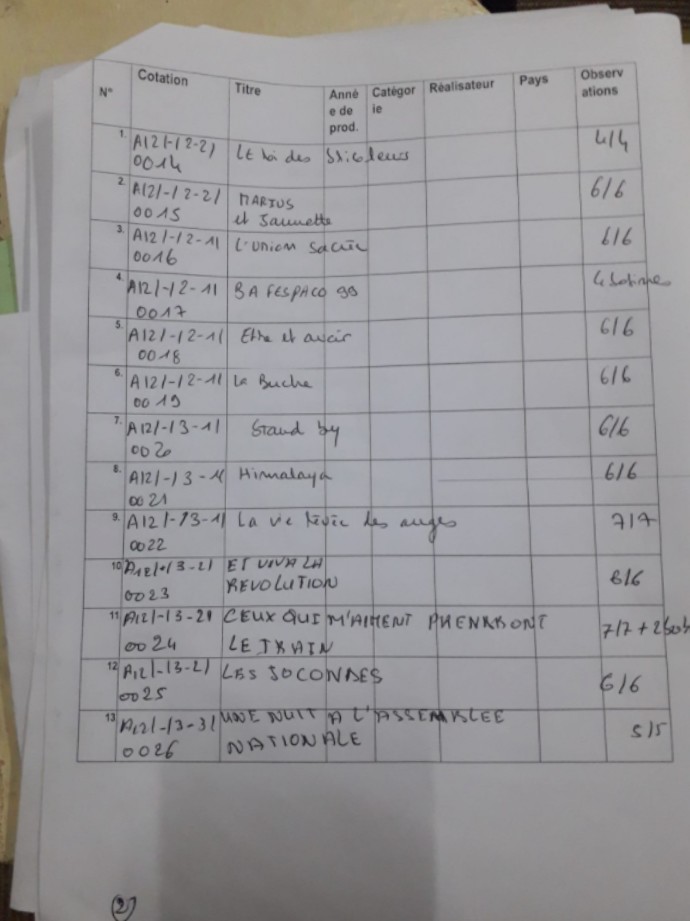 N° Cotation Titre Anné e de prod. Catégor ie Réalisateur Pays Observ ations
1. A12/-12-2/ 0014 Le roi des 4/4
2. A12/-12-2/ 0015 MARIUS et Jeannette 6/6
3. A12/-12-1/ 0016 L'union sacrée 6/6
4. A12/-12-1/ 0017 BA FESPACO 99 4 bobines
5. A12/-12-1/ 0018 Etre et avoir 6/6
6. A12/-12-1/ 0019 La Buche 6/6
7. A12/-13-1/ 0020 Stand by 6/6
8. A12/-13-1/ 0021 Himalaya 6/6
9. A12/-13-1/ 0022 La vie rêvée des anges 7/7
10 A12/-13-2/ 0023 ET VIVA LA REVOLUTION 6/6
11 A12/-13-2/ 0024 CEUX QUI M'AIMENT PRENDRONT LE TRAIN 7/7 + 2bob
12 A12/-13-2/ 0025 LES JOCONDES 6/6
13 A12/-13-3/ 0026 UNE NUIT A L'ASSEMBLEE NATIONALE 5/5
2